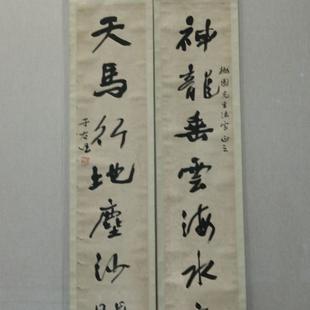 神龍垂雲海水
園先生法家正之
天馬行地塵沙
于右任